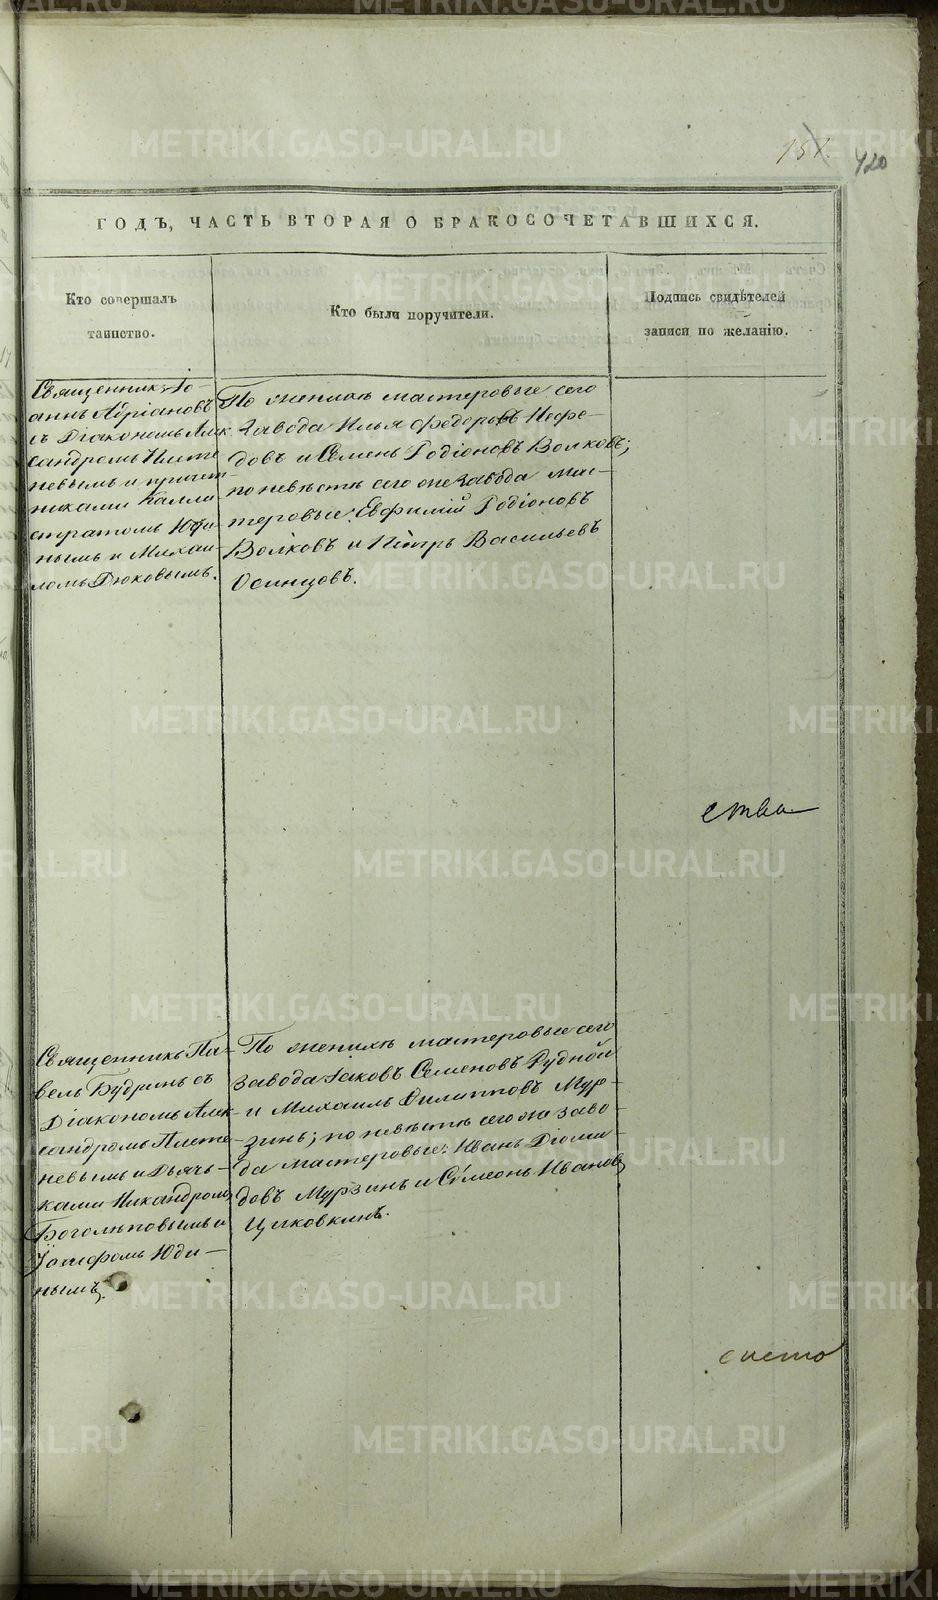 METRIKI.GASO-URAL.RU
157. 420
ГОДЪ, ЧАСТЬ ВТОРАЯ О БРАКОСОЧЕТАВШИХСЯ.
Кто совершалъ
таинство.
Кто были поручители.
Подпись свидѣтелей
записи по желанію.
Священникъ Іо-
аннъ Адріановъ
съ Діакономъ Алек
сандромъ Плете
невымъ и причет
никами Калли
стратомъ Юди
нымъ и Михаи
ломъ Дюковымъ.
По женихѣ мастеровые сего
завода Илья Федоровъ Нефе-
довъ и Семенъ Родіоновъ Волковъ;
по невѣстѣ сего же завода мас-
теровые: Евфимій Родіоновъ
Волковъ и Пётръ Васильевъ
Осинцовъ.
ства
Священникъ Па-
велъ Будринъ съ
Діакономъ Алек
сандромъ Плете-
невымъ и Дьячь-
ками Никандромъ
Боголѣповымъ и
Іосифомъ Юди-
нымъ.
По женихѣ мастеровые сего
завода Іаковъ Семеновъ Рудной
и Михаилъ Филипповъ Мур-
зинъ; по невѣстѣ сего же заво-
да мастеровые: Иванъ Діоми-
довъ Мурзинъ и Сѵмеонъ Ивановъ
Целковкинъ.